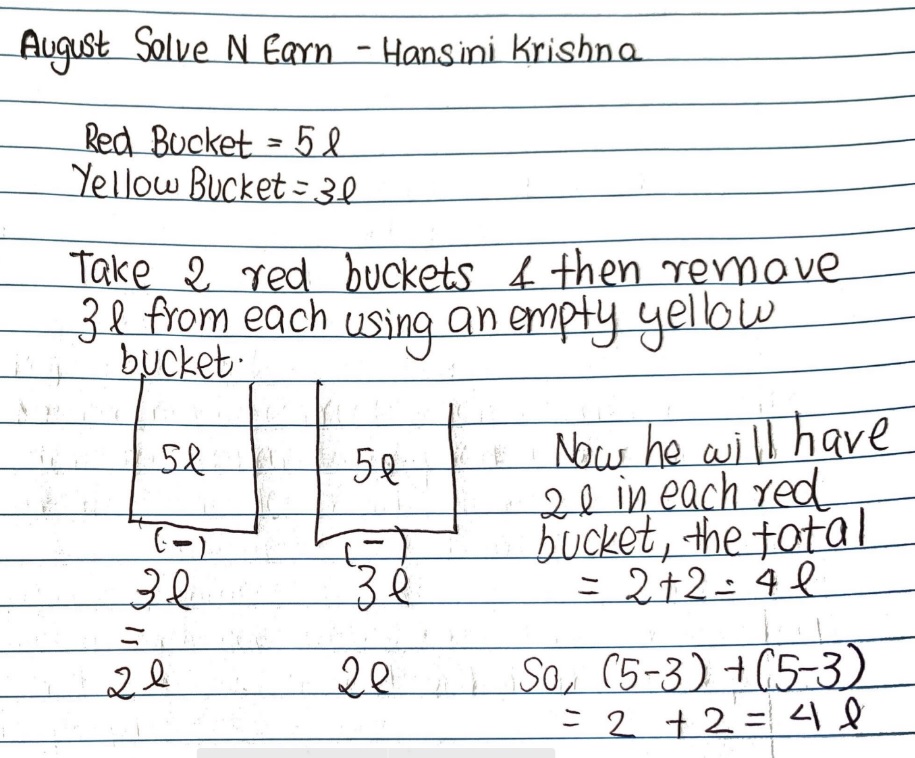 August Solve N Earn - Hansini Krishna
Red Bucket = 5l
Yellow Bucket = 3l
Take 2 red buckets & then remove
3l from each using an empty yellow
bucket.
5l 5l
(-) (-)
3l 3l
=
2l 2l
Now he will have
2l in each red
bucket, the total
= 2+2 = 4l
So, (5-3) + (5-3)
= 2 + 2 = 4l